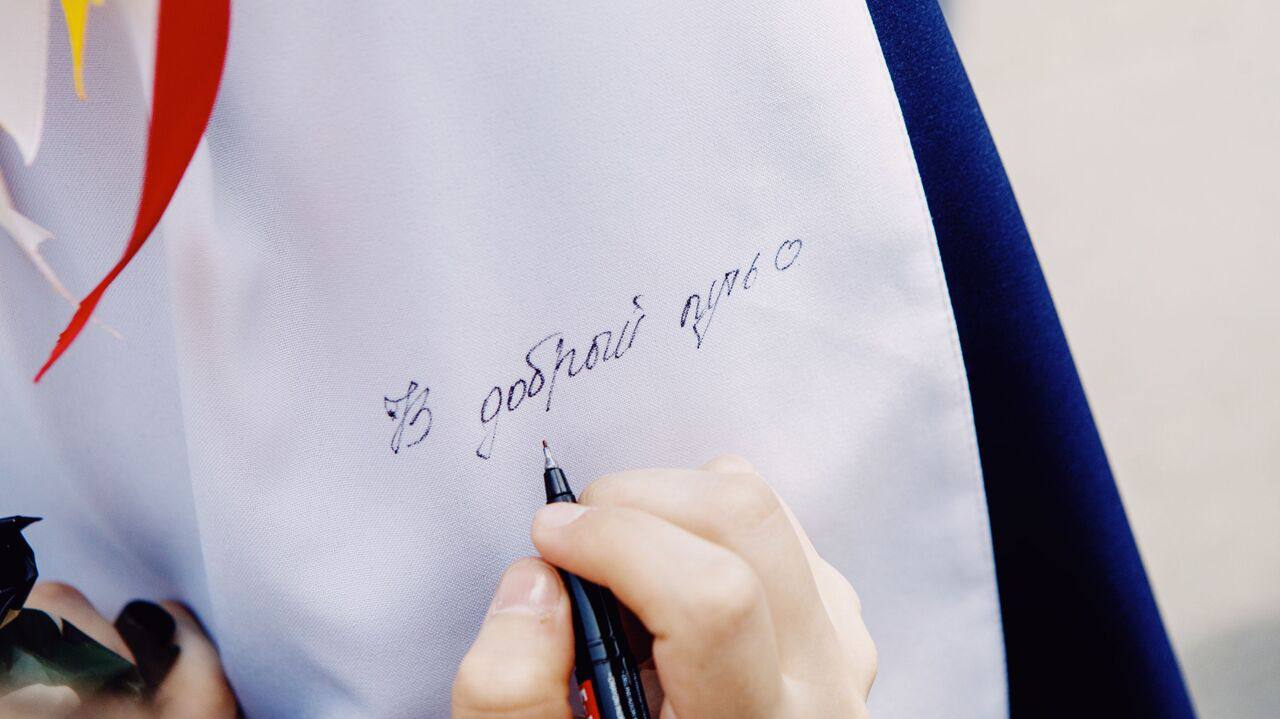 В добрый путь ♡